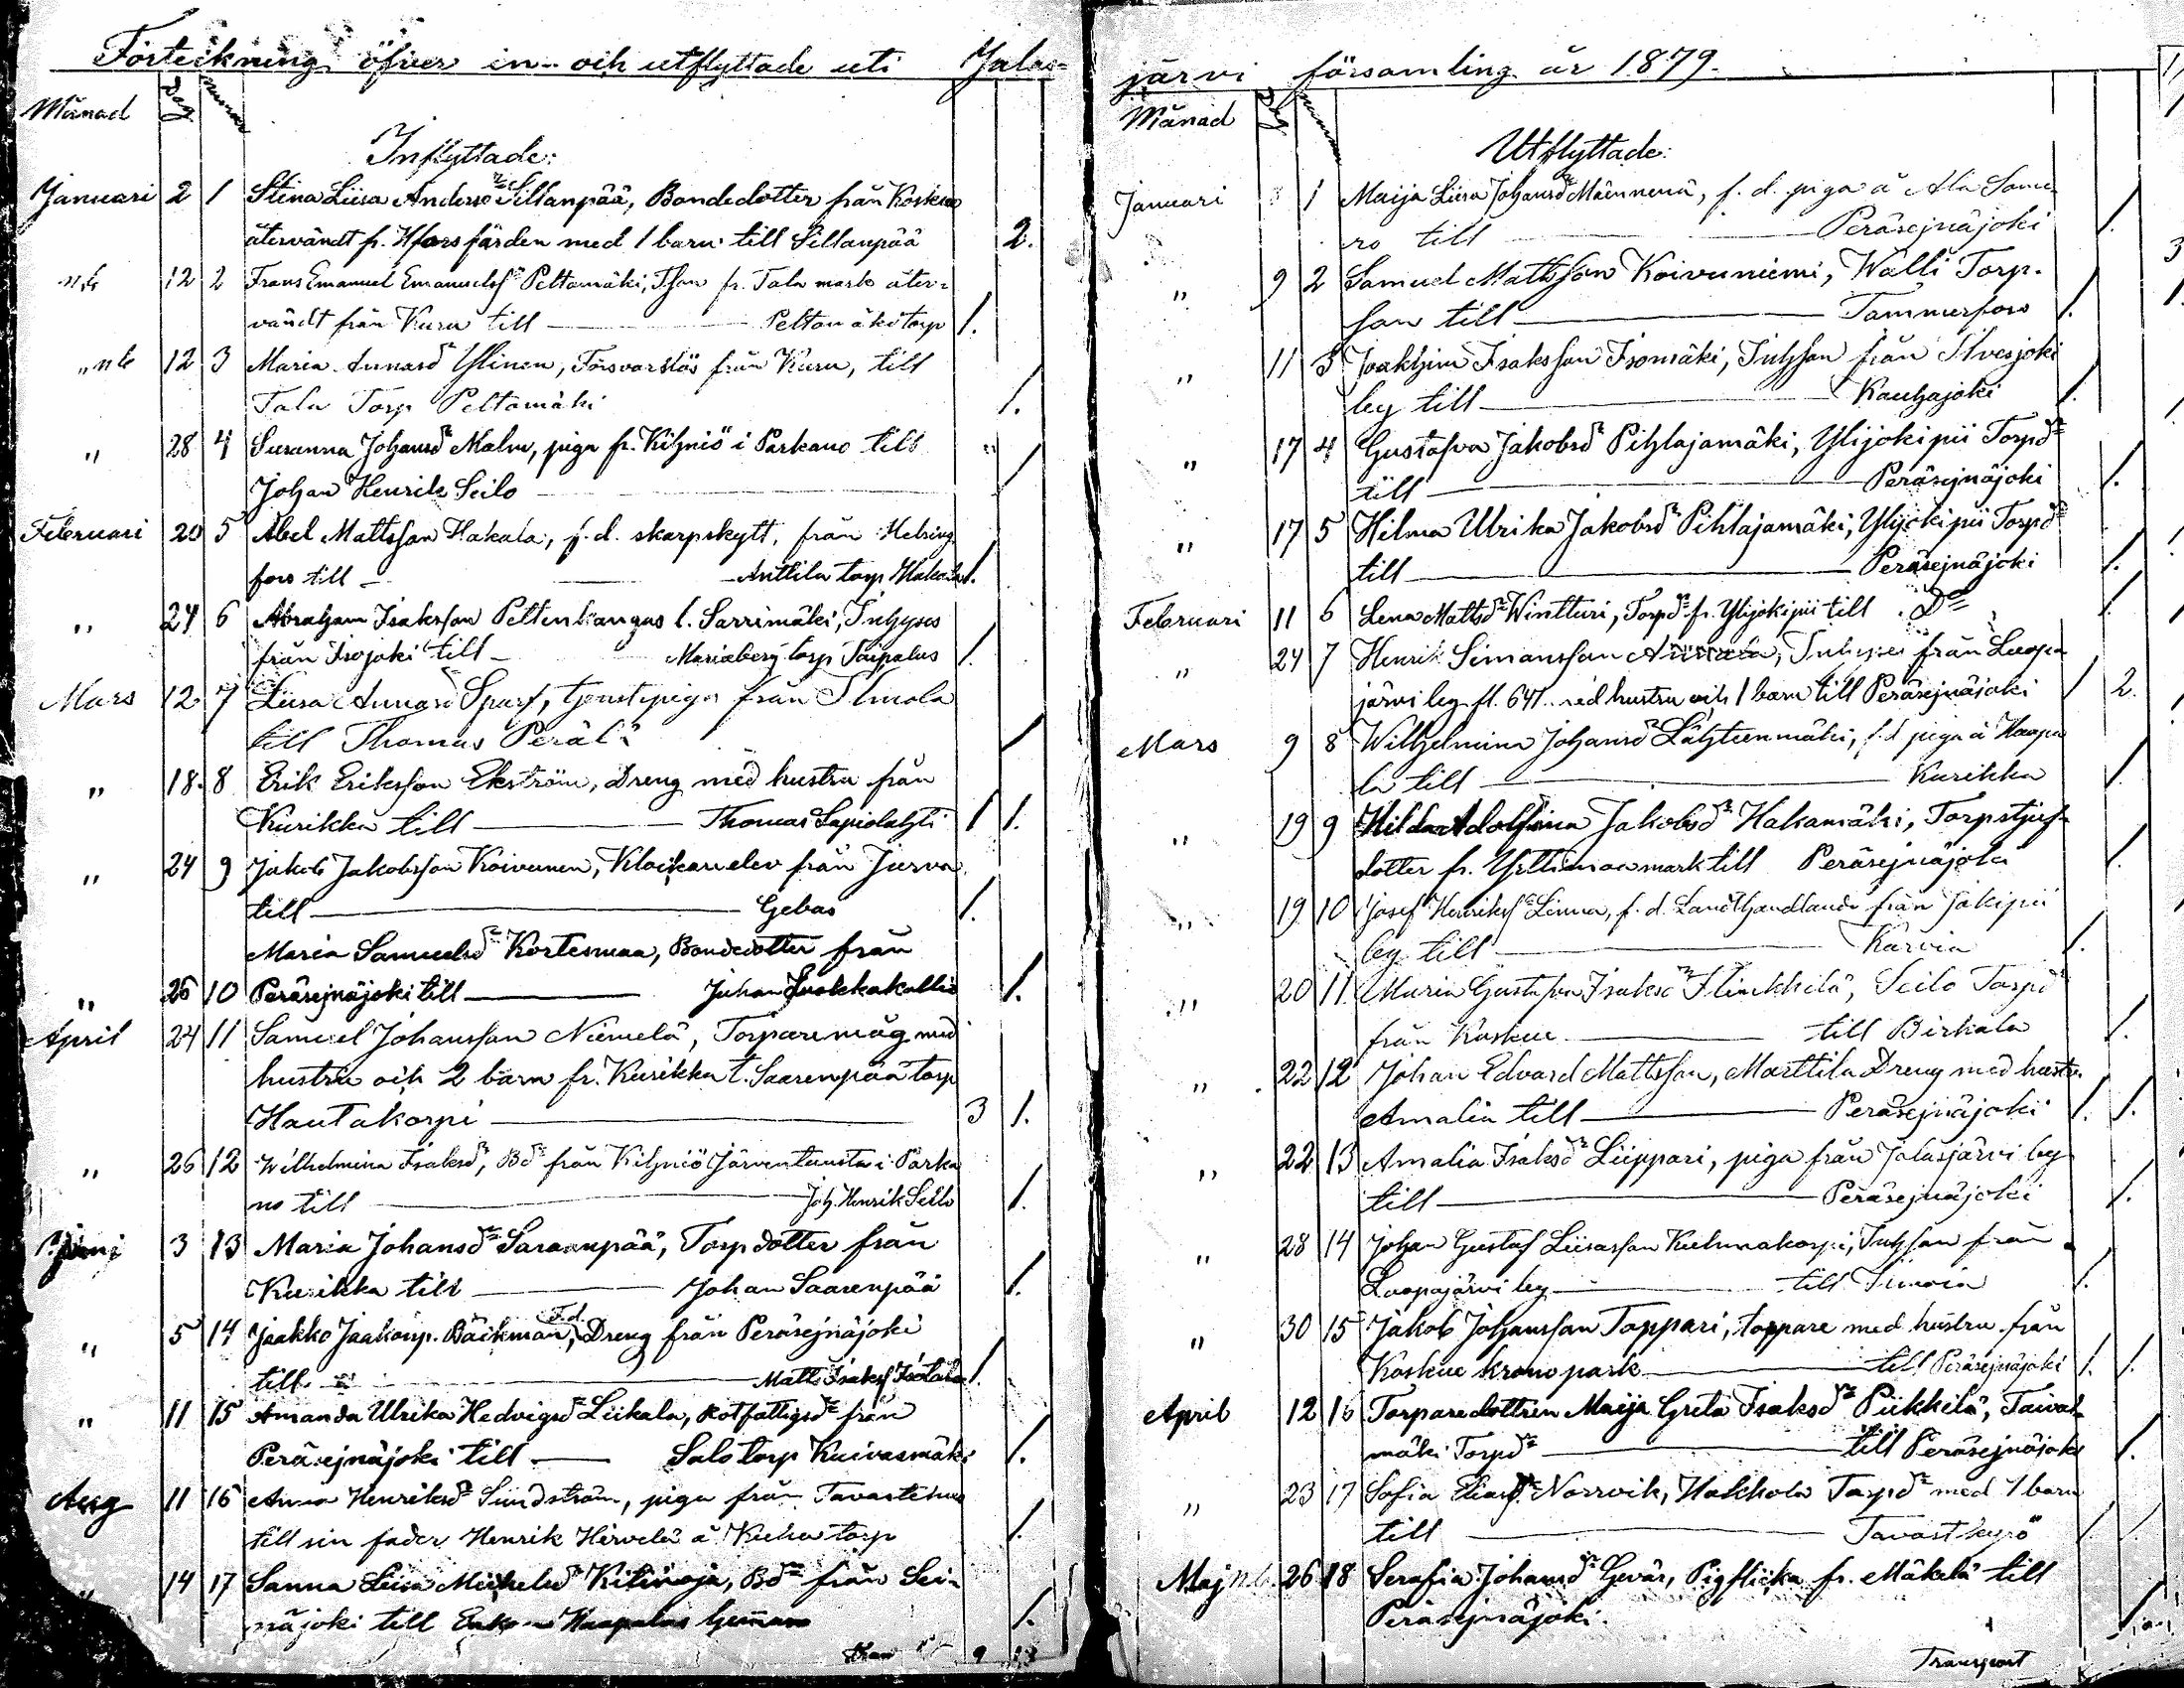 Förteckning öfver in- och utflyttade uti Jalas-
Månad Dag Numer
Inflyttade:
Januari 2 1 Stina Liisa Andersdr Sillanpää, Bondedotter från Koskue
återvändt fr. Hforsfärden med 1 barn till Sillanpää 2.
12 2 Frans Emanuel Emanuelsn Peltomäki, Tson fr. Tala mark åter-
vändt från Kuru till Peltomäki torp 1.
12 3 Maria Annasdr Ylinen, Försvarslös från Kuru, till
Tala Torp Peltomäki 1.
" 28 4 Susanna Johansdr Malm, piga fr. Kihniö i Parkano till
Johan Henrik Seilo 1
Februari 20 5 Abel Mattsson Hakala, f.d. skarpskytt, från Helsing
fors till Anttila torp Hakala 1.
" 24 6 Abraham Isaksson Peltenkangas l. Sarrimäki, Inhyses
från Isojoki till Mariæberg torp Taipalus 1.
Mars 12 7 Liisa Annasd Sparf, tjenstepiga från Ilmola
till Thomas Perälä 1
" 18. 8 Erik Eriksson Ekström, Dreng med hustru från
Kurikka till Thomas Lapiolahti 1 1.
" 24 9 Jakob Jakobsson Koivunen, Klockarelev från Jurva
till Gebas 1.
Maria Samuelsdr Kortesmaa, Bondedotter från
" 26 10 Peräsejnäjoki till Johan Luokkakallio 1.
April 24 11 Samuel Johansson Niemelä, Torparemåg med
hustru och 2 barn fr. Kurikka t. Saarenpää torp
Hautakorpi 3 1.
" 26 12 Wilhelmina Isaksdr, Bdr från Kihniö Järventausta i Parka
no till Joh. Henrik Seilo 1.
Juni 3 13 Maria Johansdr Saraanpää, Torpdotter från
Kurikka till Johan Saarenpää 1.
" 5 14 Jaakko Jaakonp. Bäckman, F.d. Dreng från Peräsejnäjoki
till Matts Isaksn Isotalo 1.
" 11 15 Amanda Ulrika Hedvigsdr Liikala, Rotfattigsdr från
Peräsejnäjoki till Salo torp Kuivasmäki 1.
Aug 11 16 Anna Henriksdr Sundström, piga från Tavastehus
till sin fader Henrik Hirvelä å Kuha torp 1.
" 14 17 Sanna Liisa Michelsdr Kitinoja, Bdr från Sei-
näjoki till Haapalas hemman 1.
9 13
järvi församling år 1879.
Månad Dag Nummer
Utflyttade:
Januari 1 Maija Liisa Johansdr Männenä, f.d. piga å Ala Same
ro till Peräsejnäjoki 1.
" 9 2 Samuel Mattsson Koivuniemi, Walli Torp.
son till Tammerfors 1.
" 11 3 Joakhim Isaksson Isomäki, Inhson från Ilvesjoki
by till Kauhajoki 1.
" 17 4 Gustafva Jakobsdr Pihlajamäki, Ylijokipii Torpdr
till Peräsejnäjoki 1.
" 17 5 Hilma Ulrika Jakobsdr Pihlajamäki, Ylijokipii Torpdr
till Peräsejnäjoki 1.
Februari 11 6 Lena Mattsdr Wintturi, Torpdr fr. Ylijokipii till Do 1.
" 24 7 Henrik Simansson från Luopa-
järvi by fl. 641 med hustru och 1 barn till Peräsejnäjoki 1 2.
Mars 9 8 Wilhelmina Johansdr Lähteenmäki, f.d piga å Haapa
la till Kurikka 1.
" 19 9 Hilda Adolfina Jakobsdr Hakamäki, Torpstjuf-
dotter fr. mark till Peräsejnäjoki 1.
" 19 10 Josef Henriksn Linna, f.d. Landthandlande från Jokipii
by till Karvia 1.
" 20 11 Maria Gustafva Isaksdr Flinkkilä, Seilo Torpd
från Koskue till Birkala 1.
" 22 12 Johan Edvard Mattsson, Marttila Dreng med hustru
Amalia till Peräsejnäjoki 1. 1.
" 22 13 Amalia Isaksdr Liippari, piga från Jalasjärvi by
till Peräsejnäjoki 1.
" 28 14 Johan Gustaf Liisasson Kuhnakorpi, Inhson från
Luopajärvi by till Ilmola 1.
" 30 15 Jakob Johansson Toppari, torpare med hustru från
Koskue kronopark till Peräsejnäjoki 1. 1.
April 12 16 Torparedottren Maija Greta Isaksdr Piikkilä, Taival-
mäki Torpdr till Peräsejnäjoki 1.
" 23 17 Sofia Eliasdr Norrvik, Hakkola Torpdr med 1 barn
till Tavastkyrö 1 1
Maj 26 18 Serafia Johansdr Gevär, Pigflicka fr. Mäkelä till
Peräsejnäjoki. 1.
Transport